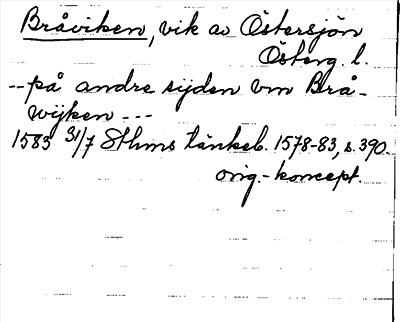 Bråviken, vik av Östersjön
Österg. l.
-- på andre sijden vm Brå-
wijken ---
1583 31/7 Sthms tänkeb. 1578-83, s. 390.
orig.- koncept.